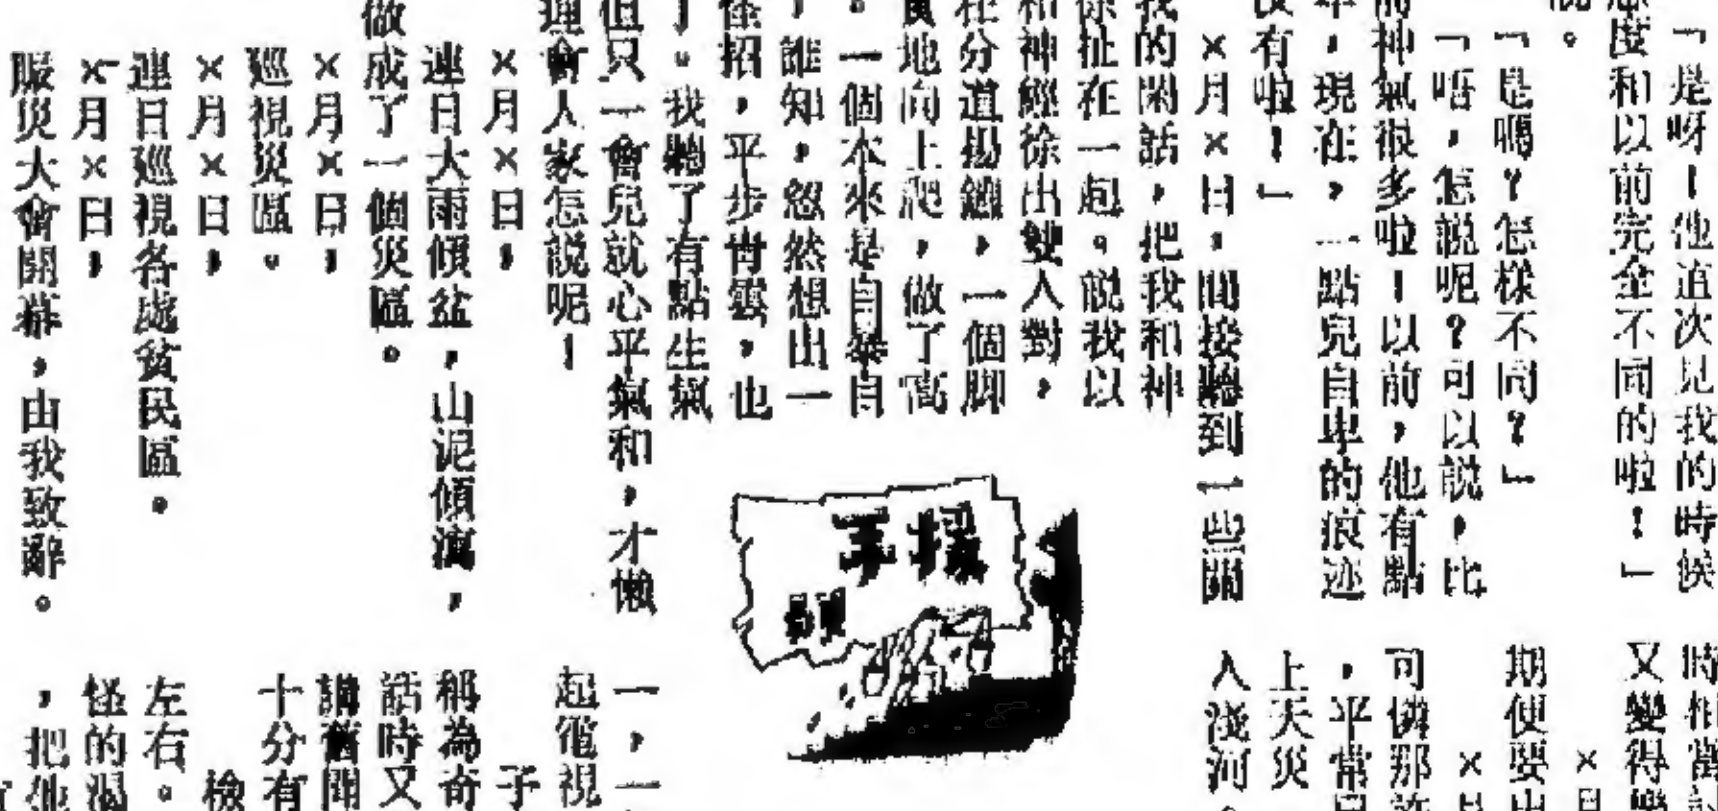 「是呀！他這次見我的時候
態度和以前完全不同的啦！」
說。
「是嗎？怎樣不同？」
「唔，怎說呢？可以說，比
前神氣很多啦！以前，他有點
卑，現在，一點兒自卑的痕迹
沒有啦！」
×月×日，間接聽到一些關
我的閑話，把我和神
徐扯在一起。說我以
和神經徐出雙入對，
在分道揚鑣，一個脚
實地向上爬，做了高
。一個本來是自暴自
，誰知，忽然想出一
怪招，平步青雲，也
了。我聽了有點生氣
但只一會兒就心平氣和，才懶
理會人家怎說呢！
×月×日，
連日大雨傾盆，山泥傾瀉，
做成了一個災區。
×月×日，
巡視災區。
×月×日，
連日巡視各處貧民區。
×月×日，
賑災大會開幕，由我致辭。
援手
時相當
又變得
×日
期便要出
×月
可憐那許
，平常日
上天災
入淺河
一，一
起電視
子
稱為奇
話時又
講舊聞
十分有
檢
左右。
怪的渴
，把他